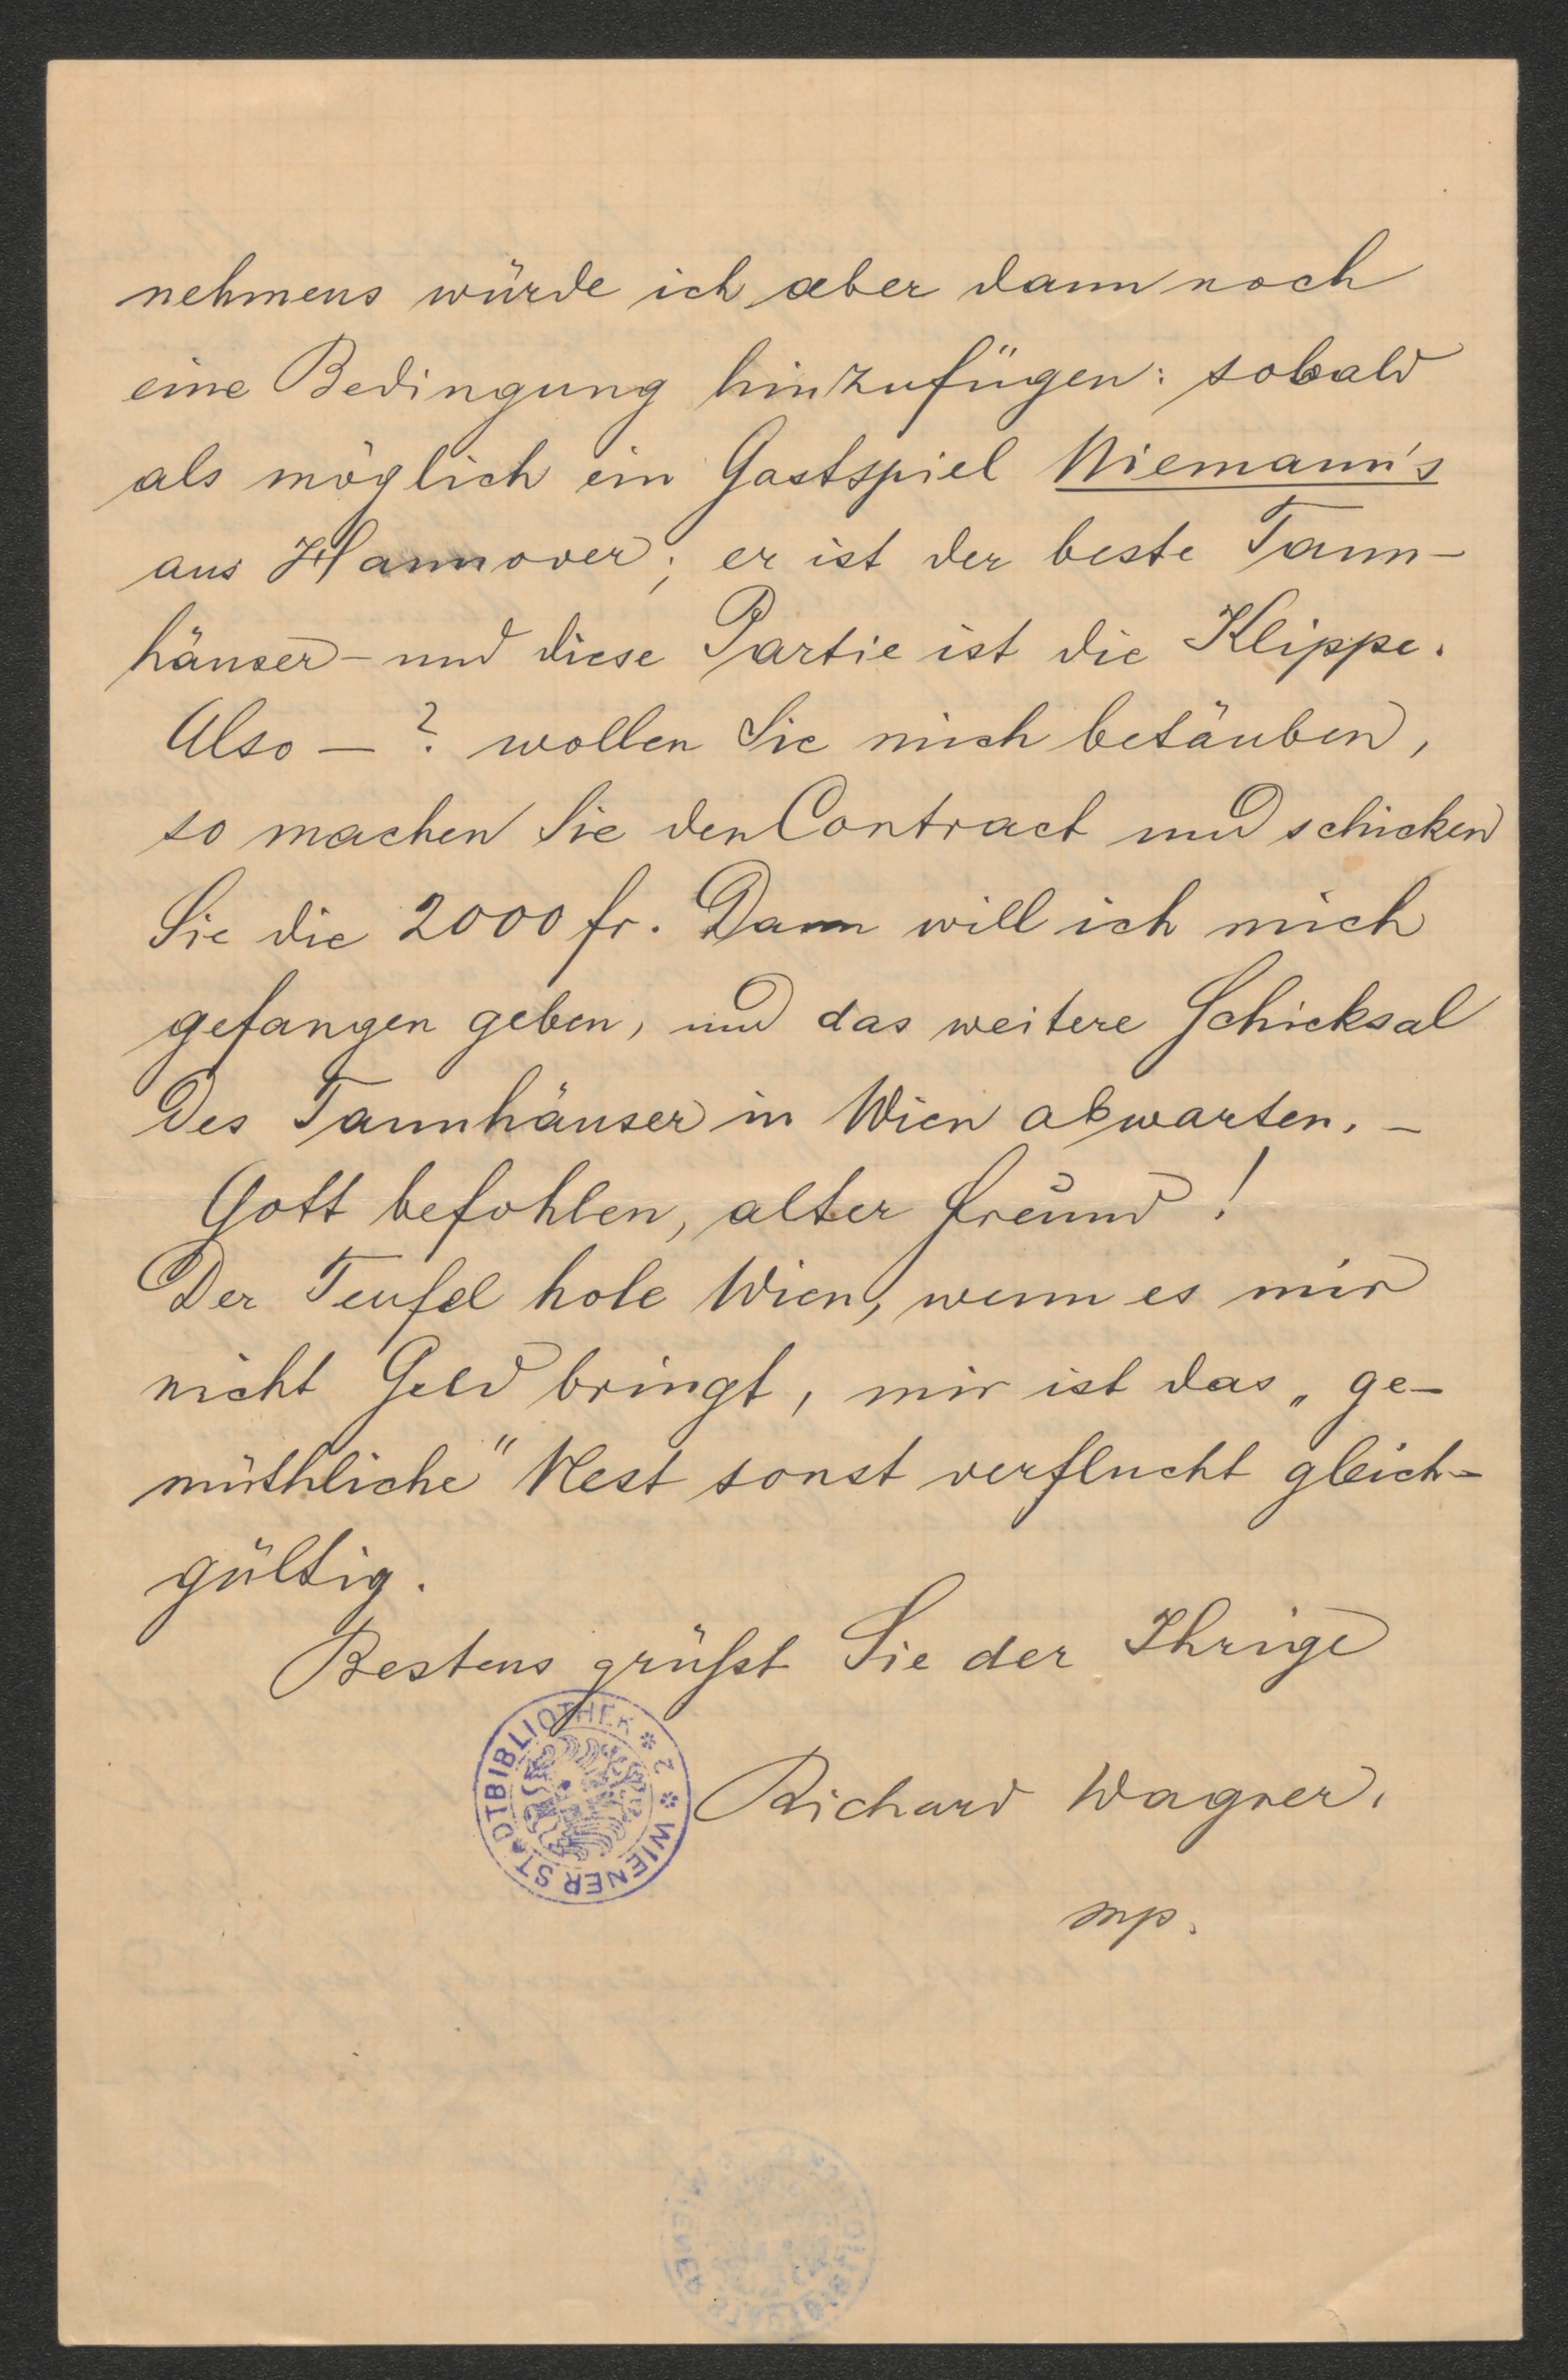 nehmens würde ich aber dann noch
eine Bedingung hinzufügen: sobald
als möglich ein Gastspiel Niemann's
aus Hannover; er ist der beste Tann-
häuser - und diese Partie ist die Klippe.
Also - ? wollen Sie mich betäuben,
so machen Sie den Contract und schicken
Sie die 2000 fr. Dann will ich mich
gefangen geben, und das weitere Schicksal
des Tannhäuser in Wien abwarten. -
Gott befohlen, alter Freund !
Der Teufel hole Wien, wenn es mir
nicht Geld bringt, mir ist das „ge-
müthliche" Nest sonst verflucht gleich-
gültig.
Bestens grüßt Sie der Ihrige
Richard Wagner.
mp.
WIENER STADTBIBLIOTHEK * 2 *